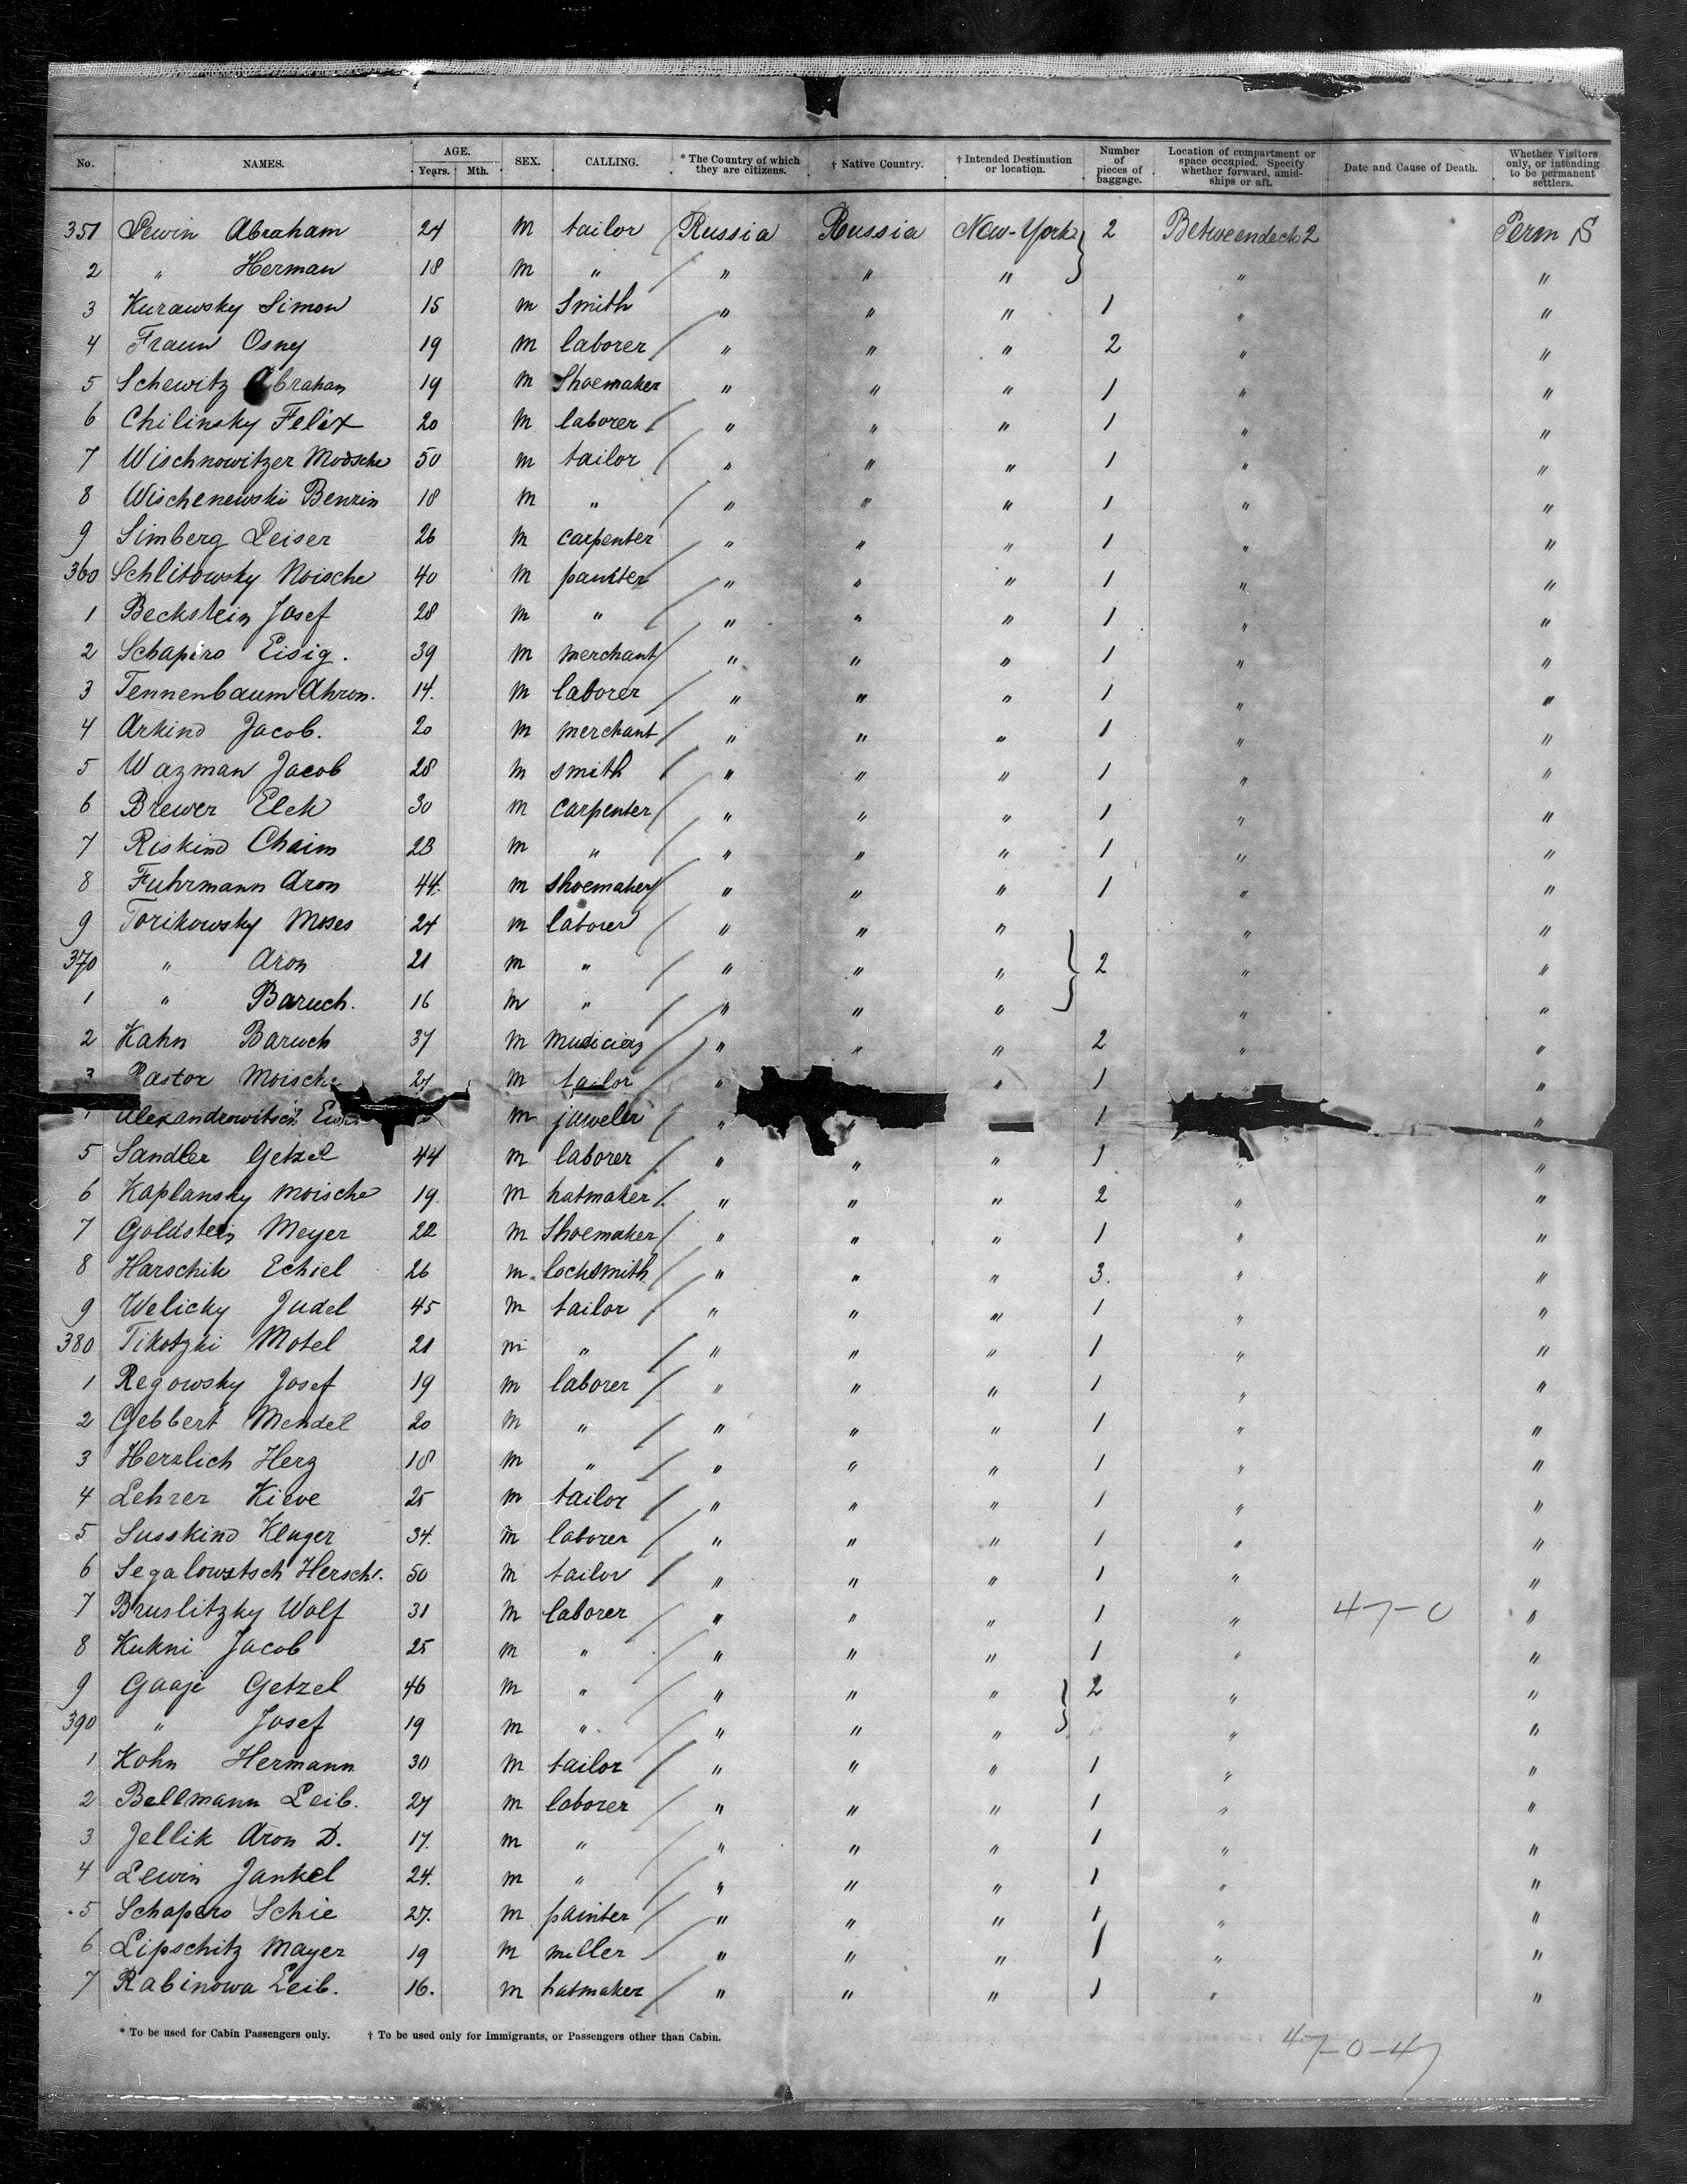 No. NAMES. AGE. Years. Mth. SEX. CALLING. * The Country of which they are citizens. † Native Country. † Intended Destination or location. Number of pieces of baggage. Location of compartment or space occupied. Specify whether forward, amidships or aft. Date and Cause of Death. Whether Visitors only, or intending to be permanent settlers.
351 Lewin Abraham 24 m tailor Russia Russia New-York 2 Betweendeck 2 Perm S
2 " Herman 18 m " " " " " "
3 Kurawsky Simon 15 m Smith " " " 1 " "
4 Fraun Osny 19 m laborer " " " 2 " "
5 Schewitz Abraham 19 m Shoemaker " " " 1 " "
6 Chilinsky Felix 20 m laborer " " " 1 " "
7 Wischnowitzer Modsche 50 m tailor " " " 1 " "
8 Wischenewski Benzin 18 m " " " " 1 " "
9 Simberg Leiser 26 m carpenter " " " 1 " "
360 Schlitowsky Noische 40 m painter " " " 1 " "
1 Beckstein Josef 28 m " " " " 1 " "
2 Schapiro Eisig. 39 m merchant " " " 1 " "
3 Tennenbaum Ahron. 14. m laborer " " " 1 " "
4 Arkind Jacob. 20 m merchant " " " 1 " "
5 Wazman Jacob 28 m smith " " " 1 " "
6 Brewer Elek 30 m carpenter " " " 1 " "
7 Riskind Chaim 23 m " " " " 1 " "
8 Fuhrmann Aron 44. m shoemaker " " " 1 " "
9 Torikowsky Moses 24 m laborer " " " " "
370 " Aron 21 m " " " " 2 " "
1 " Baruch. 16 m " " " " " "
2 Kahn Baruch 37 m " " " 2 " "
3 Pastor Moische 27 m tailor " " 1 " "
Alexandrowitsch m juweler " " 1 "
5 Sandler Getzel 44 m laborer " " " 1 " "
6 Kaplansky Moische 19. m hatmaker " " " 2 " "
7 Goldstein Meyer 22 m Shoemaker " " " 1 " "
8 Harschik Echiel 26 m. locksmith " " " 3. " "
9 Welicky Judel 45 m tailor " " " 1 " "
380 Tikotzki Motel 21 m " " " " 1 " "
1 Regowsky Josef 19 m laborer " " " 1 " "
2 Gebbert Mendel 20 m " " " " 1 " "
3 Herzlich Herz 18 m " " " " 1 " "
4 Lehrer Kieve 25 m tailor " " " 1 " "
5 Susskind Kluger 34. m laborer " " " 1 " "
6 Segalowitsch Hersch. 50 m tailor " " " 1 " "
7 Bruslitzky Wolf 31 m laborer " " " 1 " 47-0 "
8 Kukni Jacob 25 m " " " " 1 " "
9 Gaaje Getzel 46 m " " " " 2 " "
390 " Josef 19 m " " " " " "
1 Kohn Hermann 30 m tailor " " " 1 " "
2 Bellmann Leib. 27 m laborer " " " 1 " "
3 Jellik Aron D. 17. m " " " " 1 " "
4 Lewin Jankel 24. m " " " " 1 " "
5 Schapiro Schie 27. m painter " " " 1 " "
6 Lipschitz Mayer 19 m miller " " " 1 " "
7 Rabinowa Leib. 16. m hatmaker " " " 1 " "
* To be used for Cabin Passengers only. † To be used only for Immigrants, or Passengers other than Cabin.
47-0-47